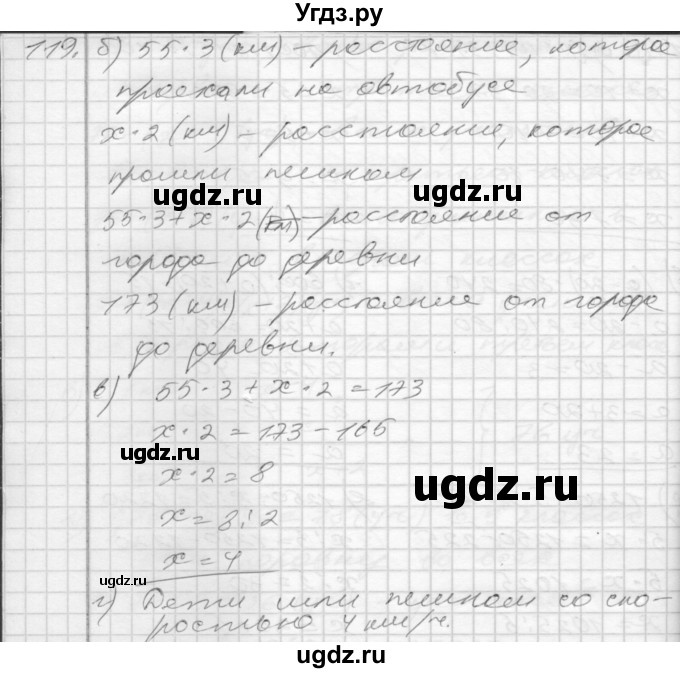 Угдз.ру
119. б) 55·3 (км) – расстояние, которое
проехали на автобусе
х·2 (км) – расстояние, которое
прошли пешком
ugdz.ru
ugdz.ru
55·3+х·2 (км) – расстояние от
города до деревни
173 (км) – расстояние от города
до деревни.
в) 55·3+х·2=173
х·2=173–165
ugdz.ru
х·2=8
ugdz.ru
х=8:2
х=4
ugdz.ru
г) Дети шли пешком со ско-
ростью 4 км/ч.
ugdz.ru